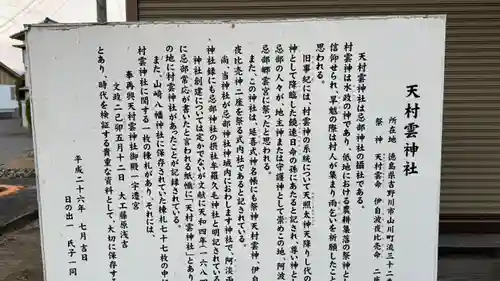 天村雲神社
所在地 徳島県吉野川市山川町流三十二
祭神 天村雲命 伊自波夜比売命 二座
天村雲神社は忌部神社の摂社である。
村雲神は水政の神であり、低地における農耕集落の祭神と
信仰せられ、旱魃の際は村人が集まり雨乞いを祈願したこと
思われる。
旧事紀には、村雲神の系統について天照太神天降り七代の
神として降臨した饒速日命の孫にあたると記され、尊い神と
忌部の人々が、地主神または守護神として崇めこの地、阿波
忌部郷雲宮に祭ったと思われる。
また、この神社は、延喜式神名帳にも祭神天村雲神、伊自
夜比売神二座を祭る式内社であると記されている。
尚、当神社が忌部神社神域内におわします神社で、阿淡両
神社録にも忌部神社の摂社牟羅久毛神社と明記されている
神社創建については定かでないが文献に天和四年(一六八四
に忌部常応が書いたと言われる紙幟に「天村雲神社」とあり
の地に村雲神社があったことが記録されている。
また、山崎八幡神社に保存されていた棟札七十七枚の中に
村雲神社に関する一枚の棟札があり、それには、
奉再興天村雲神社御殿一宇遷宮
文政二己卯五月十二日 大工藤原浅吉
とあり、時代を検証する貴重な資料として、大切に保存する
平成二十六年 七月吉日
日の出一 氏子一同